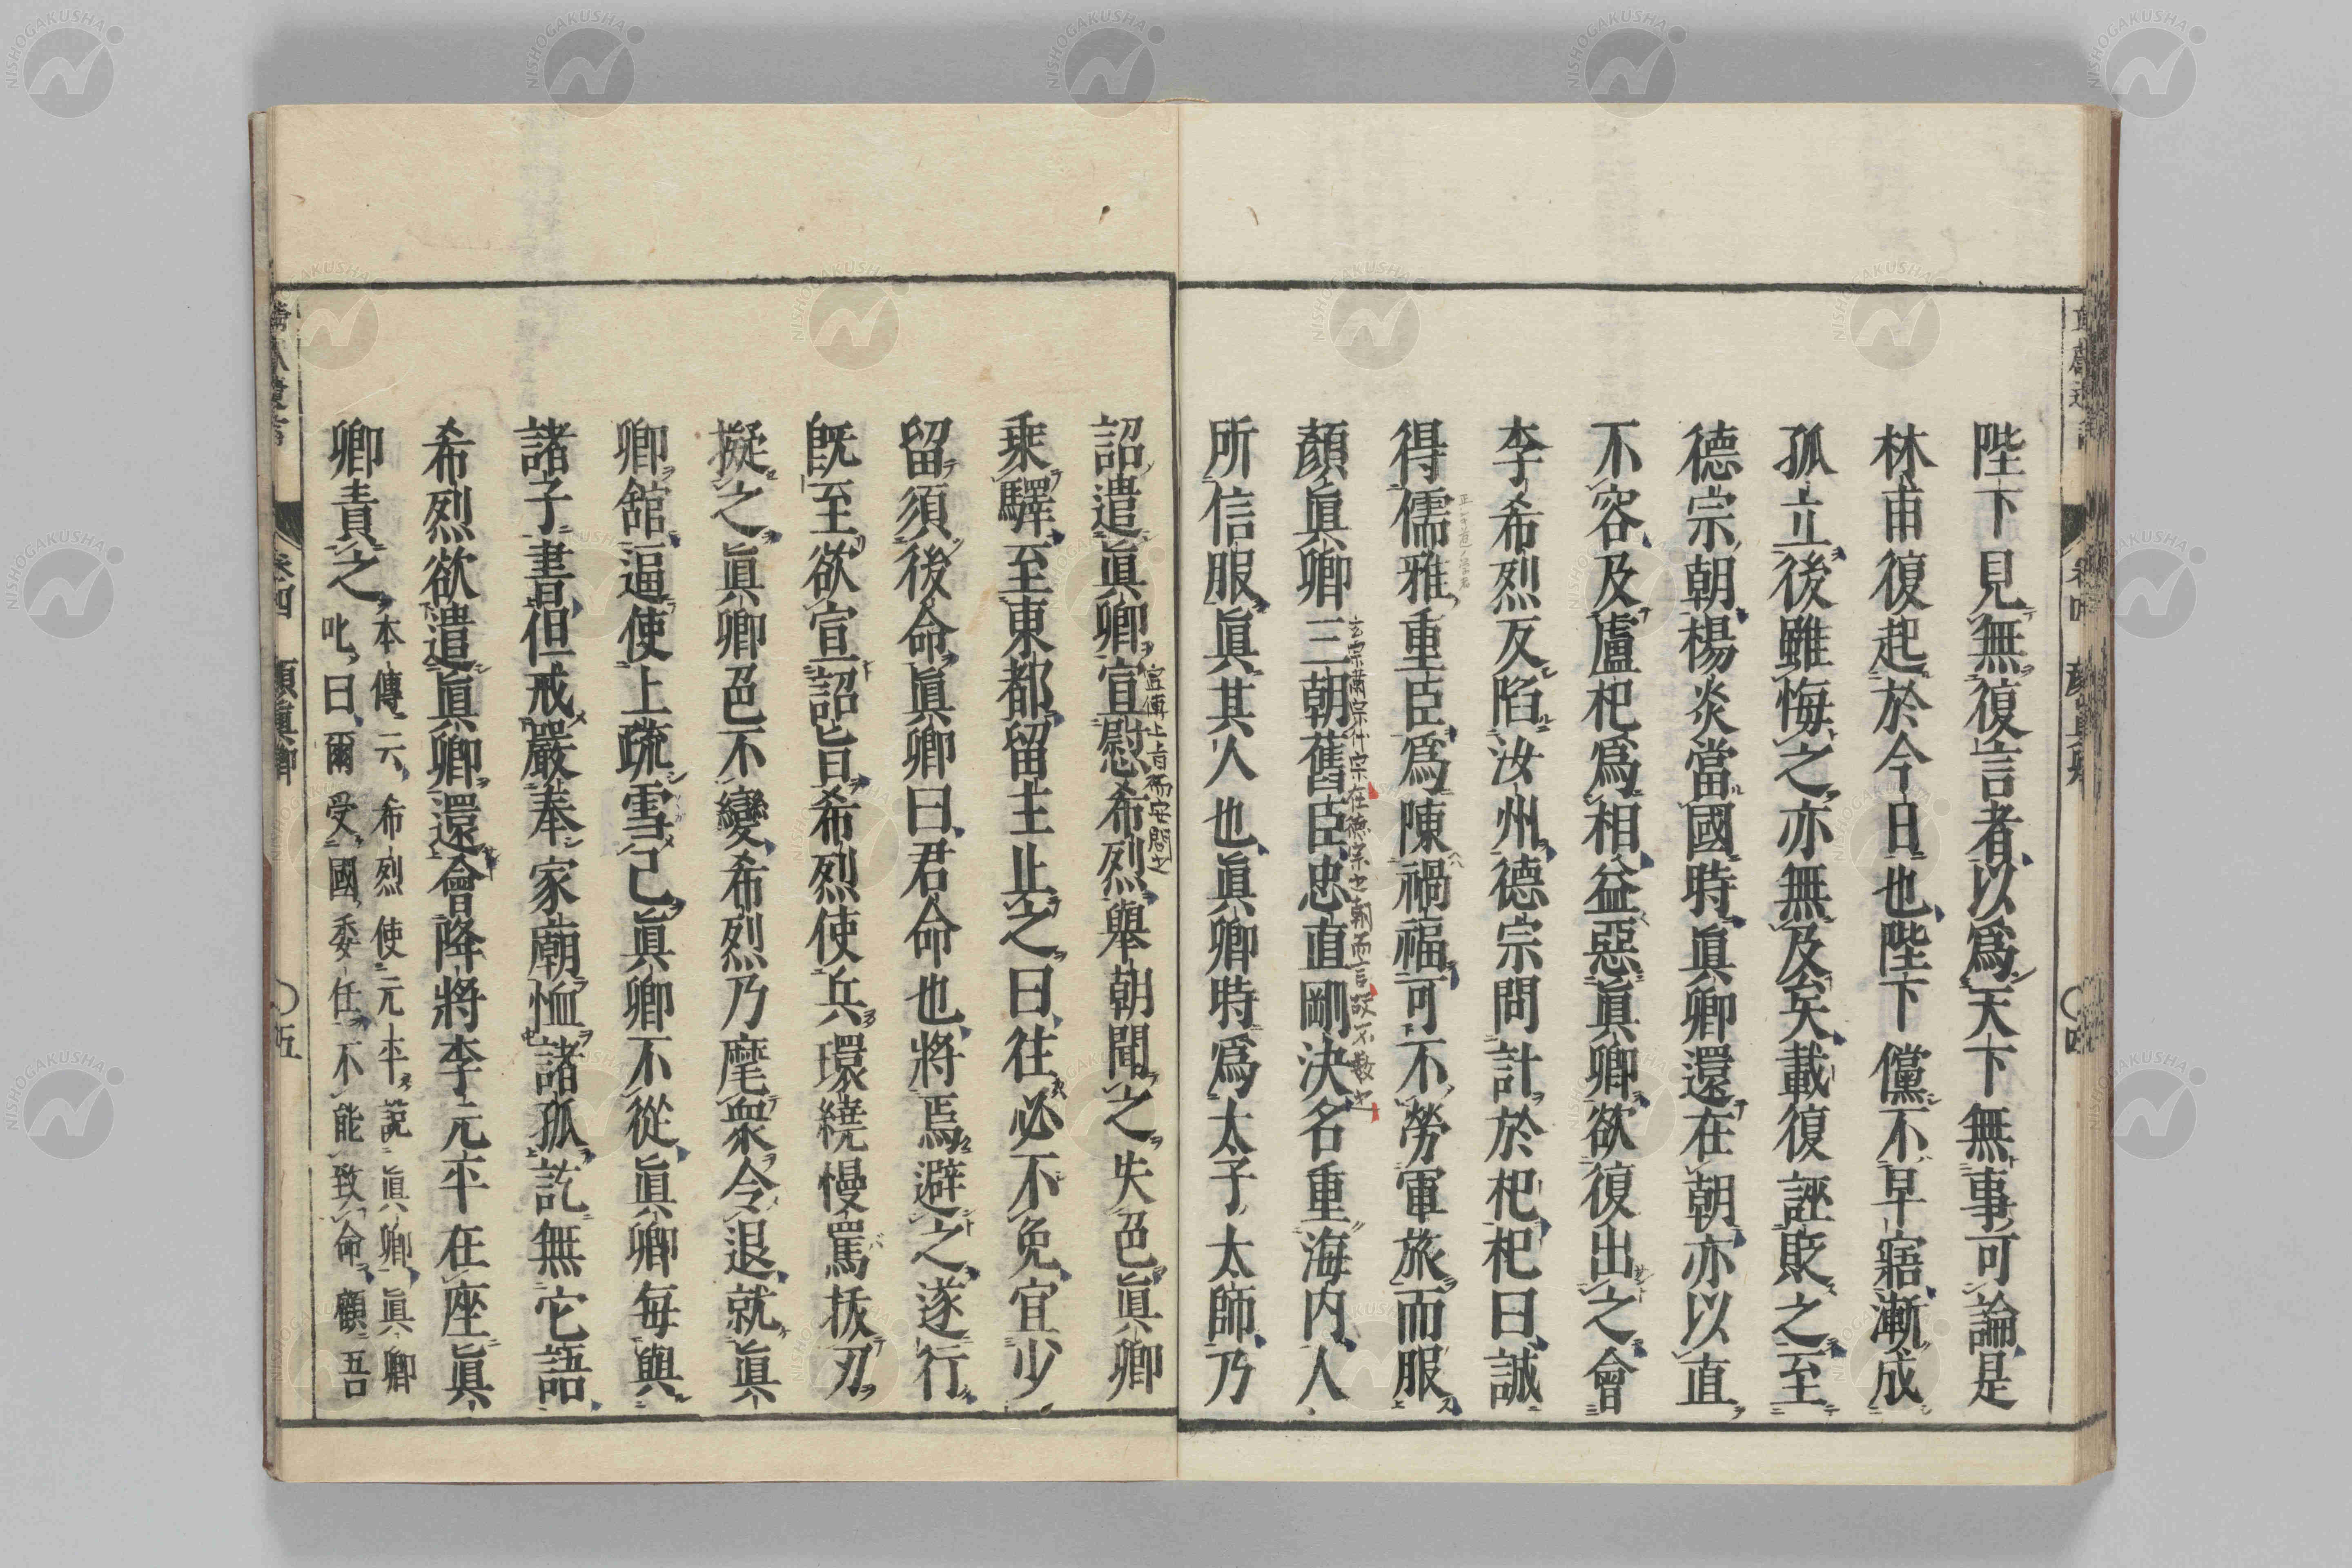 陛下見無復言者以爲天下無事可論是
林甫復起於今日也陛下儻不早寤漸成
孤立後雖悔之亦無及矣載復誣貶之至
德宗朝楊炎當國時眞卿還在朝亦以直
不容及盧杞爲相益惡眞卿欲復出之會
李希烈反陷汝州德宗問計於杞杞曰誠
得儒雅重臣爲陳禍福可不勞軍旅而服
顏眞卿三朝舊臣忠直剛決名重海内人
玄宗肅宗代宗在德宗之朝而言故不數也
所信服眞其人也眞卿時爲太子太師乃
詔遣眞卿宣慰希烈舉朝聞之失色眞卿
宣傳上旨而安問之
乘驛至東都留主止之曰往必不免宜少
留須後命眞卿曰君命也將焉避之遂行
既至欲宣詔旨希烈使兵環繞慢罵拔刃
擬之眞卿色不變希烈乃麾衆令退就眞
卿舘逼使上疏雪己眞卿不從眞卿每與
諸子書但戒嚴奉家廟恤諸孤訖無它語
希烈欲遣眞卿還會降將李元平在座眞
卿責之
本傳云希烈使元平説眞卿眞卿
叱曰爾受國委任不能致命顧吾
卷四 顏眞卿 五